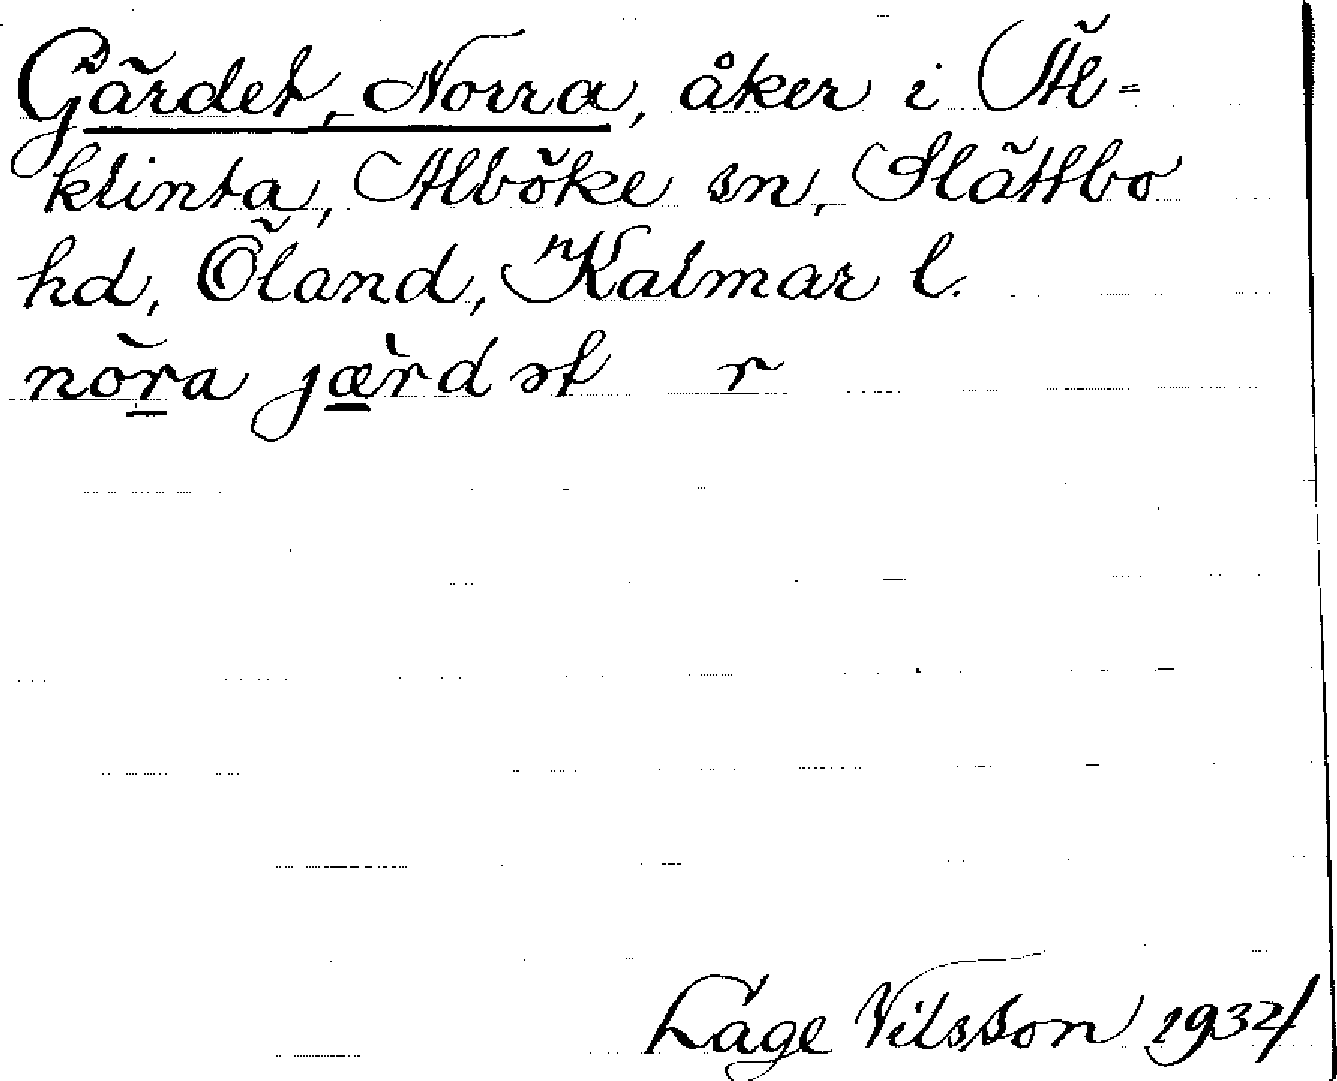 Gärdet, Norra, åker i Äle-
klinta, Alböke sn, Slättbo
hd, Öland, Kalmar l.
nŏr̲a jæ̲̀rdət r
Lage Nilsson 1934